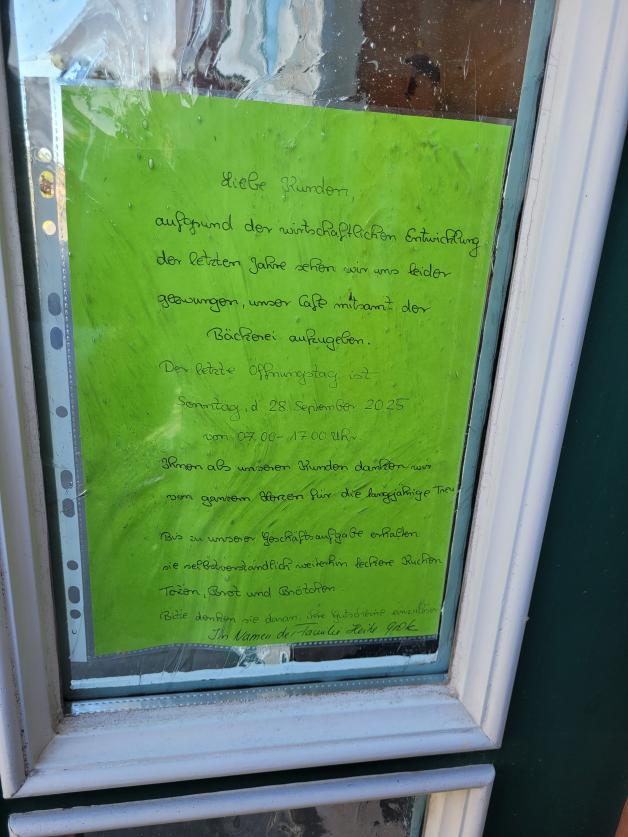 Liebe Kunden,
aufgrund der wirtschaftlichen Entwicklung
der letzten Jahre sehen wir uns leider
gezwungen, unser Café mitsamt der
Bäckerei aufzugeben.
Der letzte Öffnungstag ist
Sonntag, d. 28. September 2025
von 07.00 - 17.00 Uhr.
Ihnen als unseren Kunden danken wir
von ganzem Herzen für die langjährige Treu
Bis zu unserer Geschäftsaufgabe erhalten
sie selbstverständlich weiterhin leckere Kuchen
Torten, Brot und Brötchen
Bitte denken sie daran, ihre Gutscheine einzulösen
Im Namen der Familie Heike